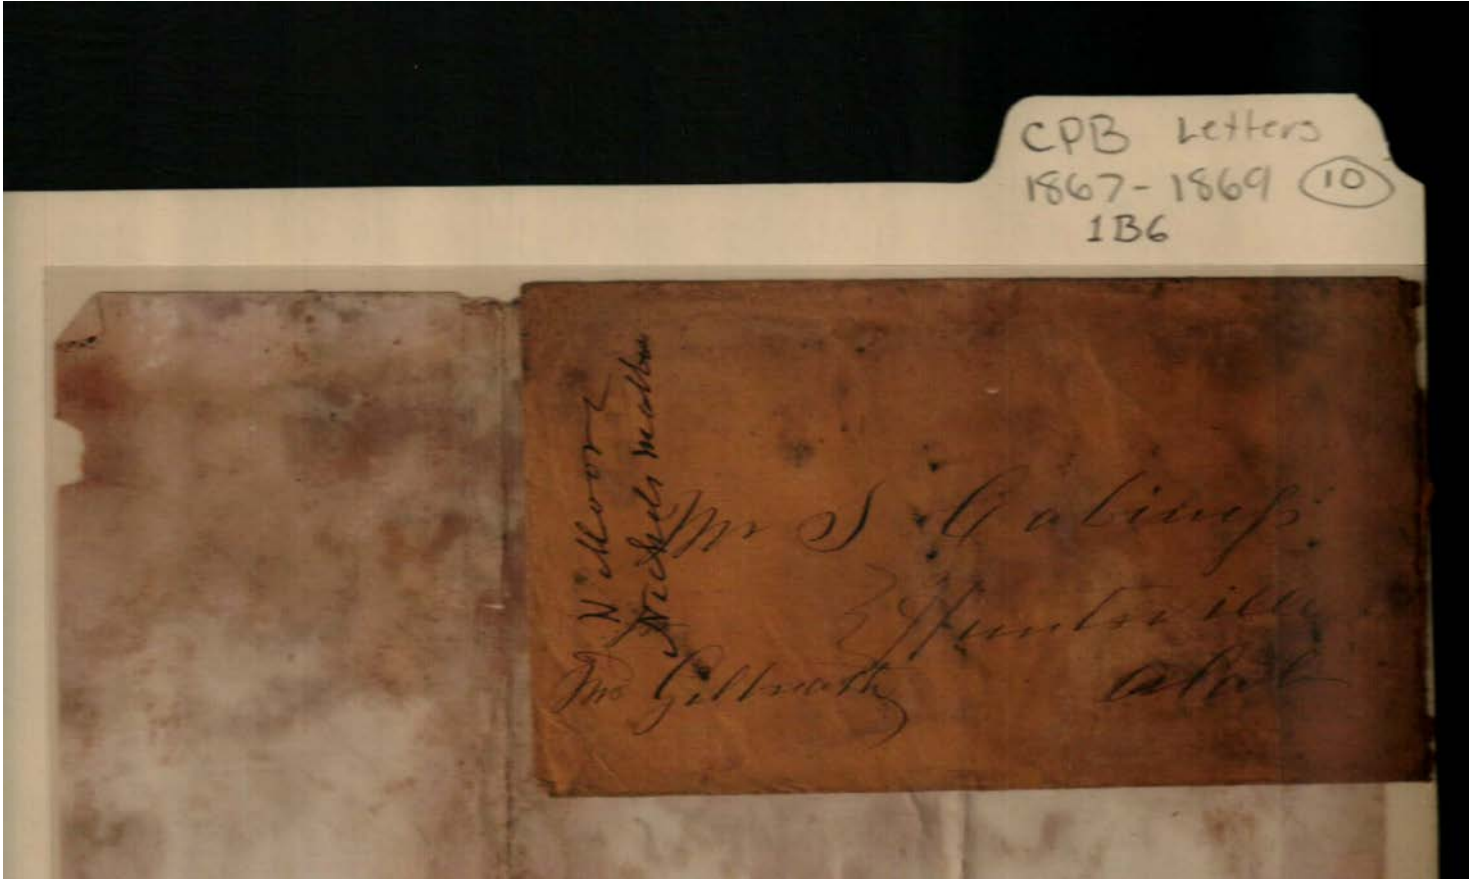 CPB Letters
1867-1869 10
1B6
Wm Moore
Nichols
Mr S Cabiness
Huntsville
Alab
Mr Gillreath